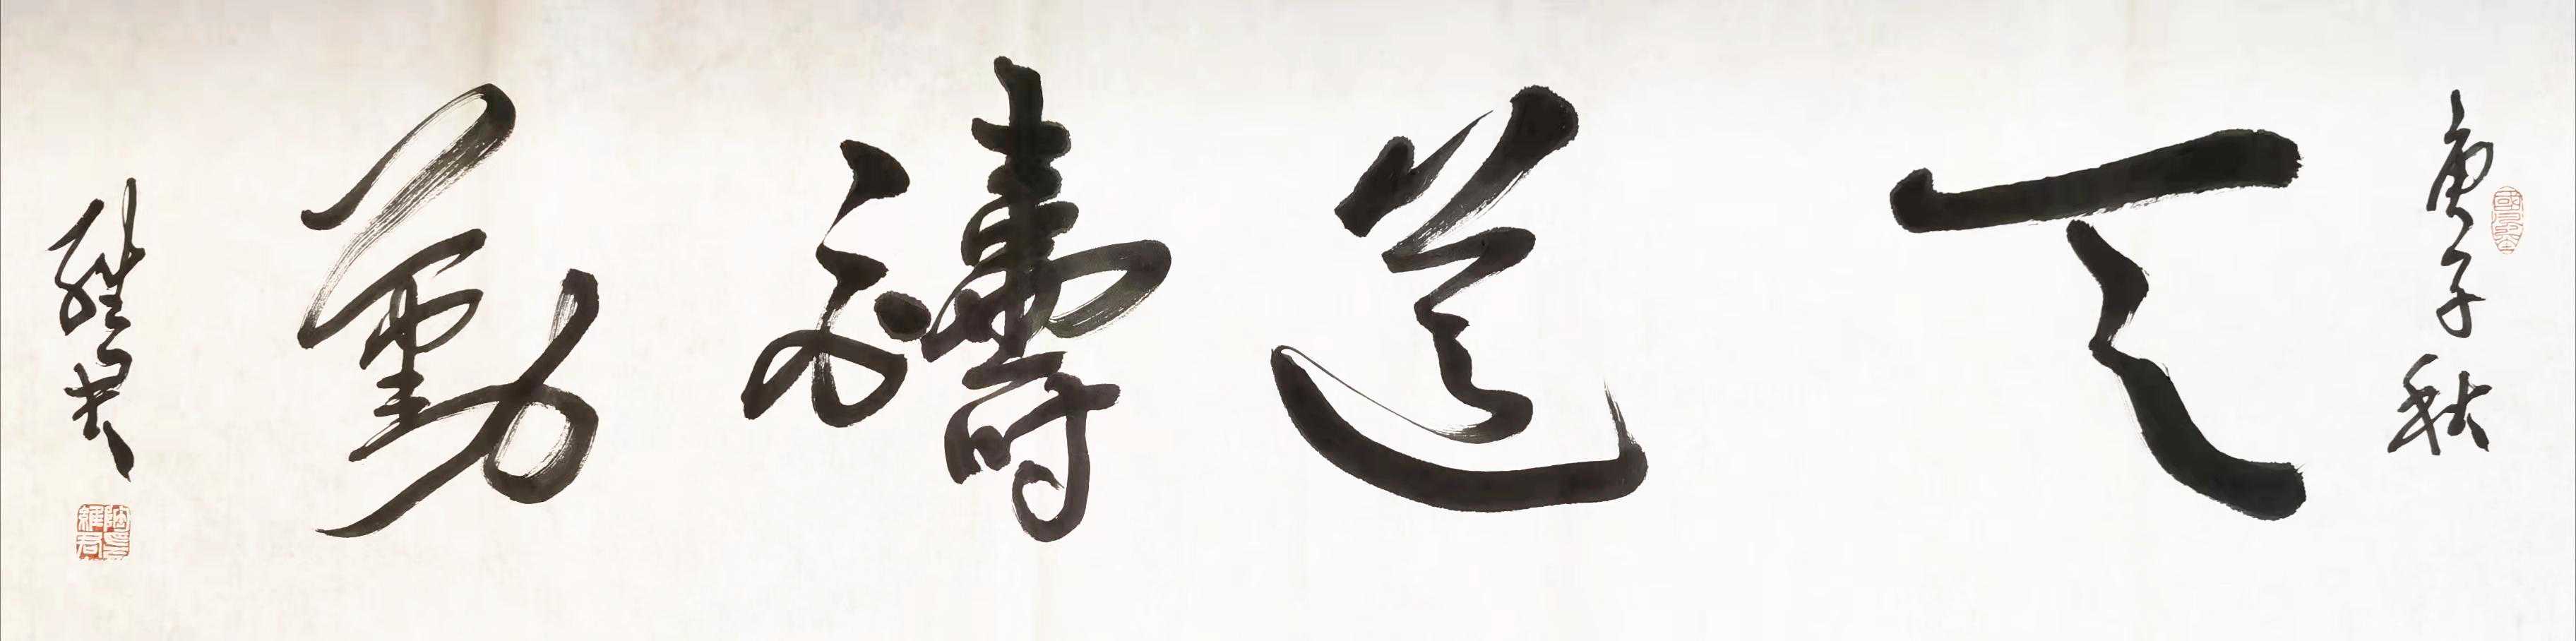 庚子秋
天道酬勤
維君